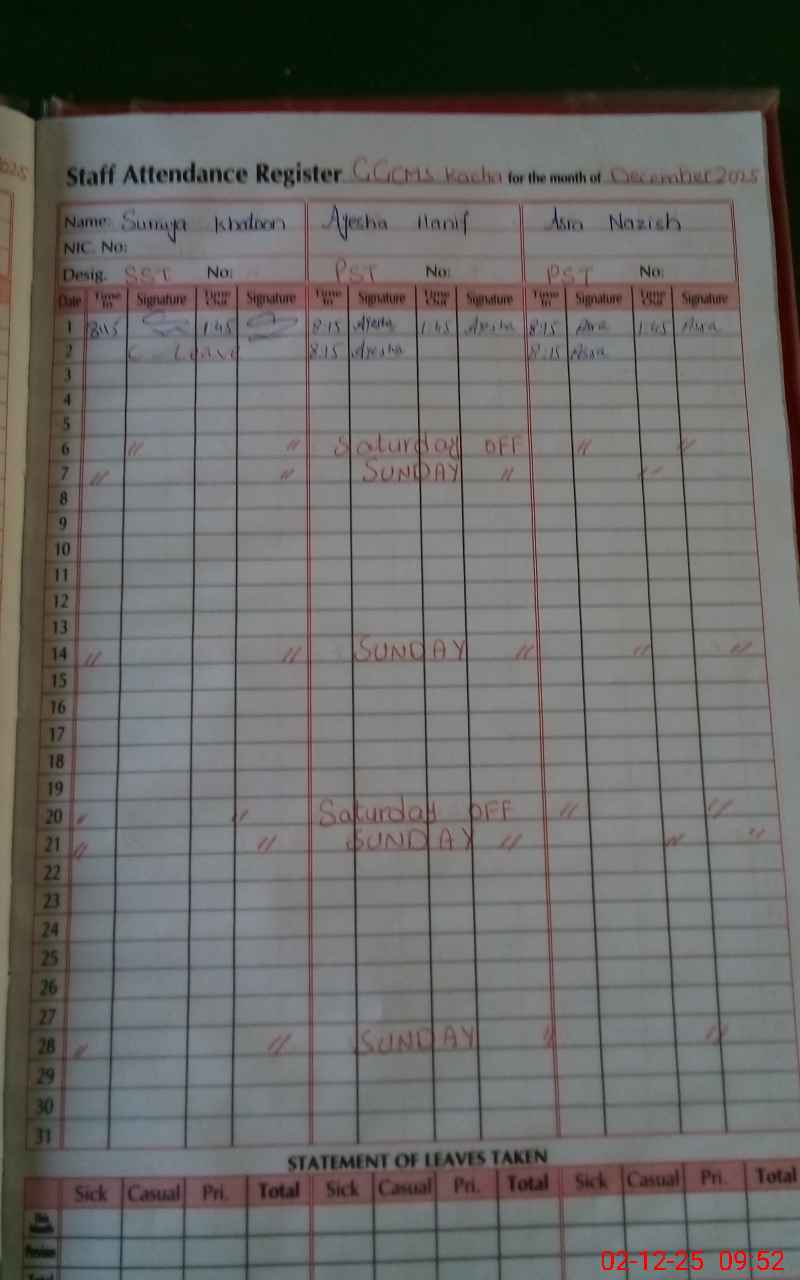 2025
Staff Attendance Register GGCMS Kacha for the month of December 2025
Name: Surraya Khatoon Ayesha Hanif Asra Nazish
NIC. No:
Desig. SST No: PST No: PST No:
Date Time In Signature Time Out Signature Time In Signature Time Out Signature Time In Signature Time Out Signature
1 8:15 1:45 8:15 Ayesha 1:45 Ayesha 8:15 Asra 1:45 Asra
2 C-Leave 8:15 Ayesha 8:15 Asra
3
4
5
6 〃 〃 Saturday OFF 〃 〃
7 〃 〃 SUNDAY 〃 〃
8
9
10
11
12
13
14 〃 〃 SUNDAY 〃 〃 〃
15
16
17
18
19
20 〃 〃 Saturday OFF 〃 〃
21 〃 〃 SUNDAY 〃 〃 〃
22
23
24
25
26
27
28 〃 〃 SUNDAY 〃 〃
29
30
31
STATEMENT OF LEAVES TAKEN
Sick Casual Pri. Total Sick Casual Pri. Total Sick Casual Pri. Total
This Month
Previous
Total
02-12-25 09:52